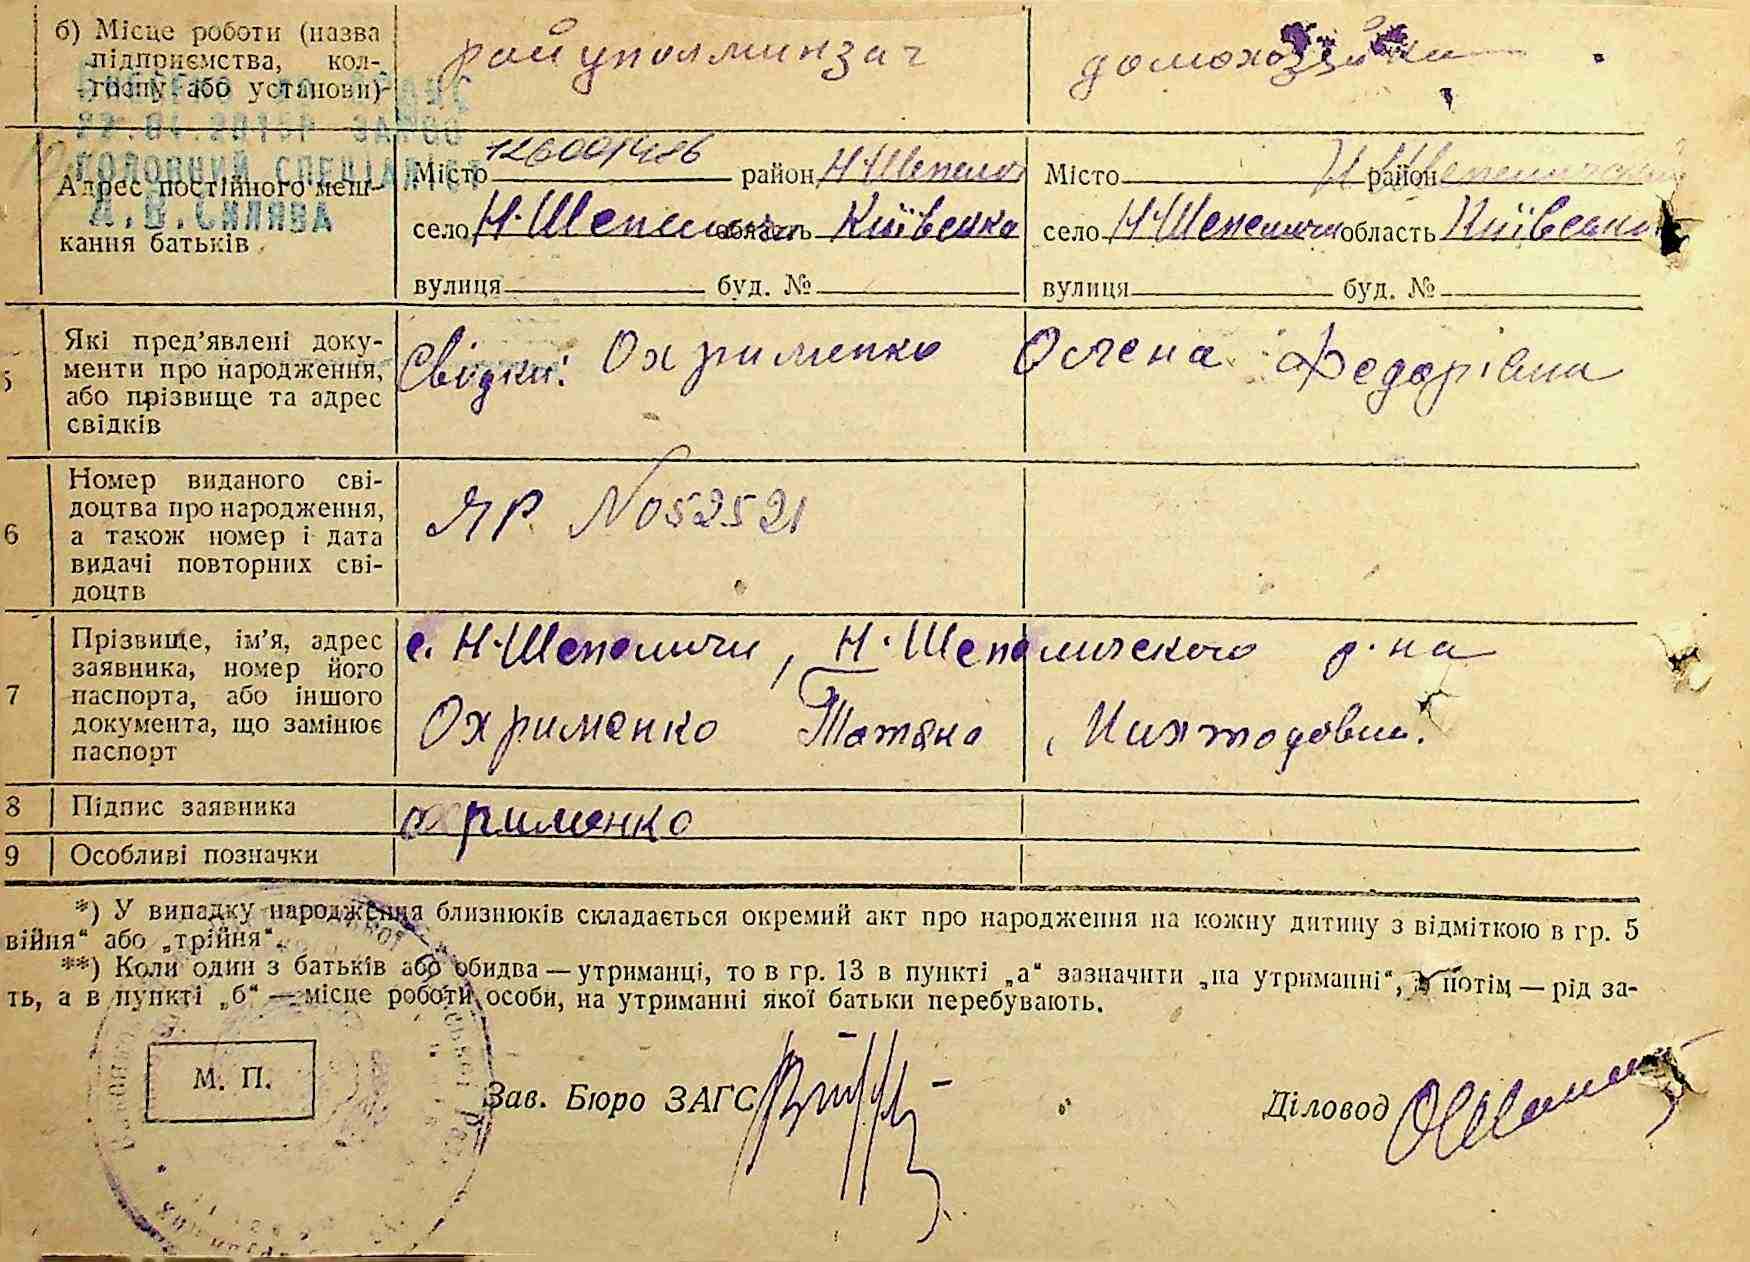 б) Місце роботи (назва
підприємства, кол-
госпу або установи)
райуполминзаг
домохозяйка
ГОЛОВНИЙ СПЕЦІАЛІСТ
Адрес постійного меш-
кання батьків
Місто 126001486 район Н-Шепелич
село Н-Шепеличи область Київська
вулиця буд. №
Місто район Н Шепеличский
село Н-Шепеличи область Київська
вулиця буд. №
5 Які пред’явлені доку-
менти про народження,
або прізвище та адрес
свідків
Свідки: Охрименко Олена Федорівна
6 Номер виданого сві-
доцтва про народження,
а також номер і дата
видачі повторних сві-
доцтв
ЯР № 052521
7 Прізвище, ім’я, адрес
заявника, номер його
паспорта, або іншого
документа, що замінює
паспорт
с. Н-Шепеличи, Н-Шепеличского р-на
Охрименко Татяна
8 Підпис заявника
охрименко
9 Особливі позначки
*) У випадку народження близнюків складається окремий акт про народження на кожну дитину з відміткою в гр. 5
війня“ або „трійня“.
**) Коли один з батьків або обидва — утриманці, то в гр. 13 в пункті „а“ зазначити „на утриманні“, а потім — рід за-
ть, а в пункті „б“ — місце роботи особи, на утриманні якої батьки перебувають.
М. П.
Зав. Бюро ЗАГС
Діловод